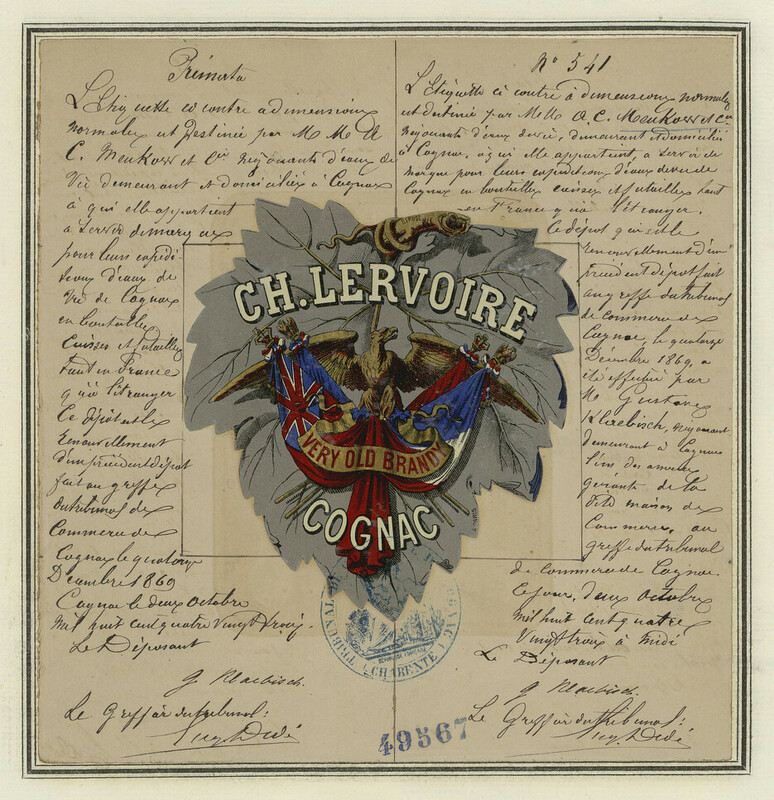 Primata
L'Etiquette ci contre a dimensions
normales est destinée par M M A
C. Meukow et Cie négociants d'eaux de
Vie demeurant et domiciliés à Cognac
à qui elle appartient
à servir de marque
pour leurs expédi-
tions d'eaux de
Vie de Cognac
en bouteilles
Caisses et futailles
tant en France
qu'à l'étranger
Ce dépôt est le
Renouvellement
d'un précédent dépôt
fait au greffe
du tribunal de
Commerce de
Cognac le quatorze
Décembre 1869
Cognac le deux Octobre
mil huit cent quatre vingt trois.
Le Déposant
g Klaebisch.
Le Greffier du tribunal:
No 541
L'Etiquette ci contre à dimensions normales
est destinée par MM A. C. Meukow et Cie
négociants d'eaux de vie, demeurant et domiciliés
à Cognac, à qui elle appartient, à servir de
marque pour leurs expéditions d'eaux de vie de
Cognac en bouteilles caisses et futailles tant
en France qu'à l'étranger.
Ce dépôt qui est le
renouvellement d'un
précédent dépôt fait
au greffe du tribunal
de commerce de
Cognac, le quatorze
Décembre 1869, a
été effectué par
M. Gustave
Klaebisch, négociant
demeurant à Cognac
l'un des
gérants de la
dite maison de
Commerce, au
greffe du tribunal
de commerce de Cognac
ce jour, deux Octobre
mil huit cent quatre
Vingt trois à midi
Le Déposant
g Klaebisch.
Le Greffier du tribunal:
CH. LERVOIRE
VERY OLD BRANDY
COGNAC
TRIBUNAL
CHARENTE
49567